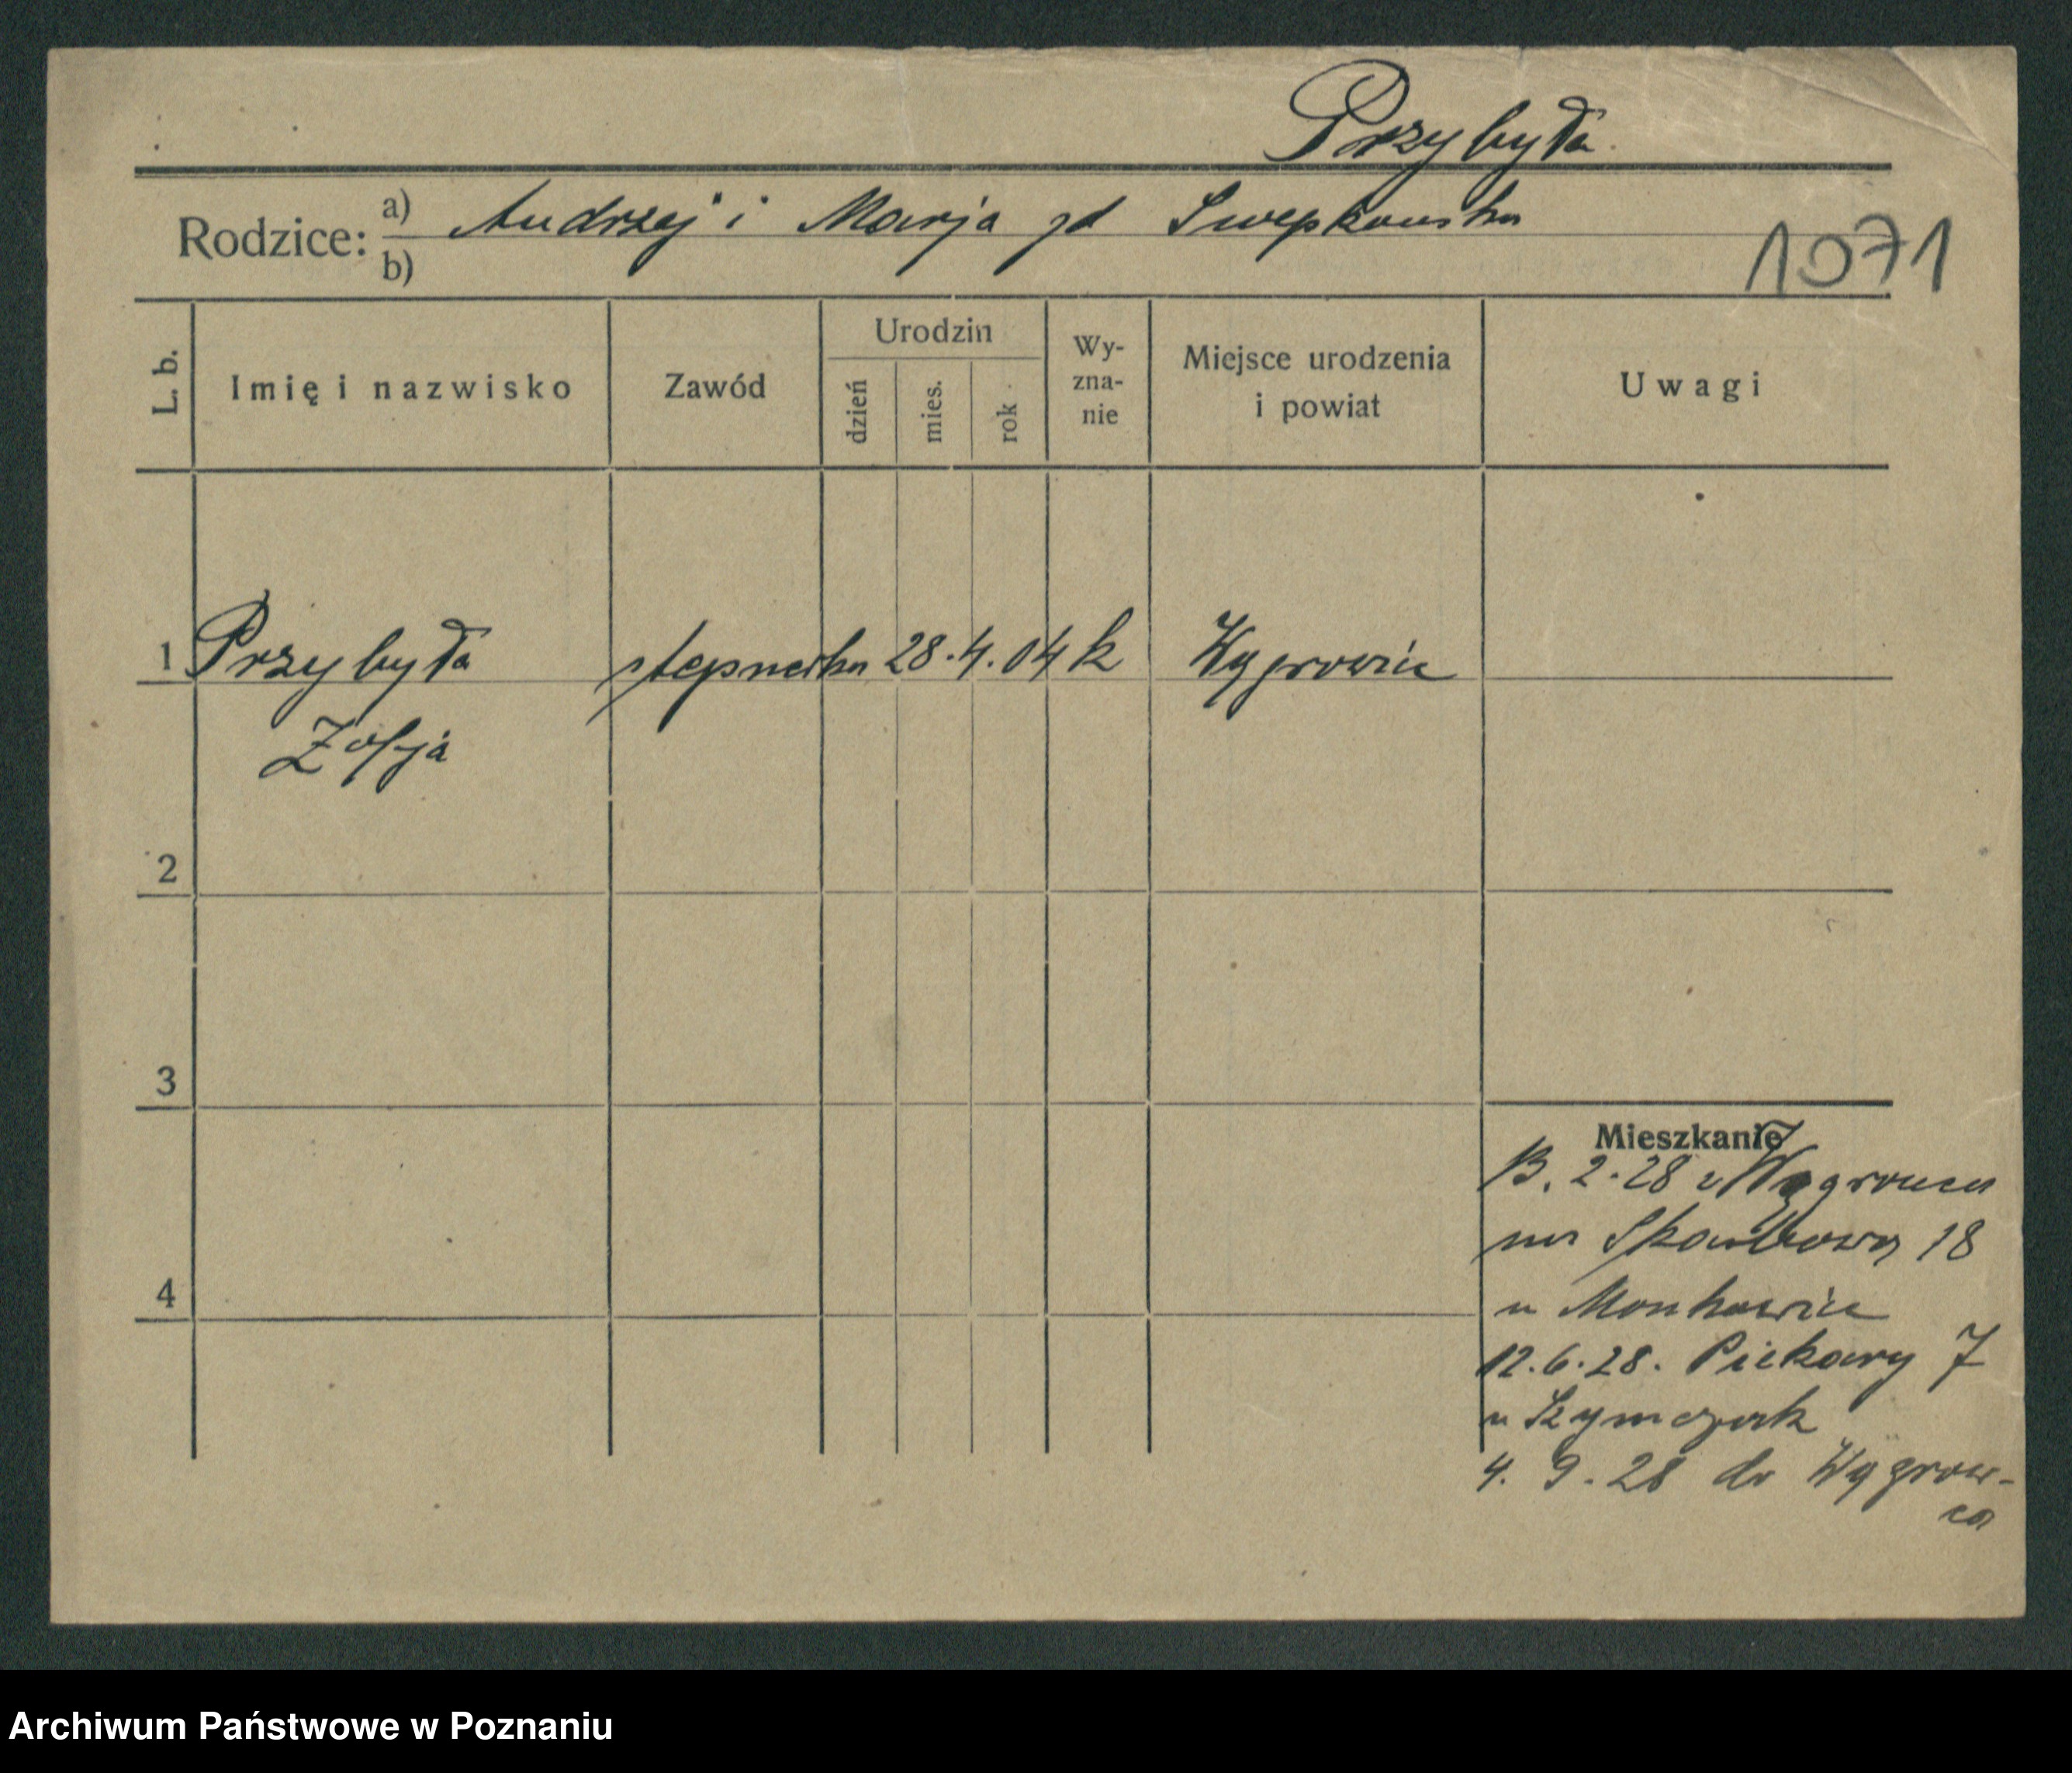 Przybyła
Rodzice: a) Andrzej i Marja zd
b)
1071
L. b.
Imię i nazwisko
Zawód
Urodzin
dzień
mies.
rok
Wy-
zna-
nie
Miejsce urodzenia
i powiat
Uwagi
1 Przybyła 28.4.04 k Wągrowiec
Zofja
2
3
4
Mieszkanie
2.28 z Wągrowca
18
u
12.6.28. Piekary 7
u Szymczak
4.9.28 do Wągrow-
ca
Archiwum Państwowe w Poznaniu